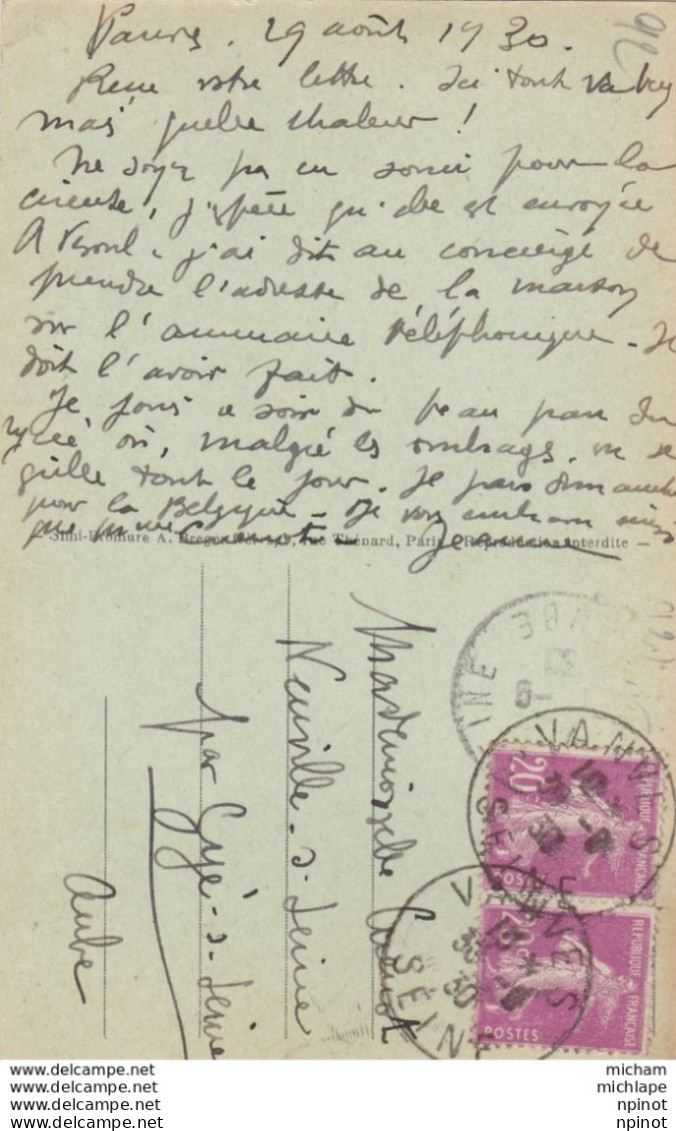 29 août 1930.
votre lettre. Ici tout va bien
mais quelle chaleur !
Ne soyez pas en souci pour la
j'espère qu'elle est envoyée
A Vesoul. j'ai dit au concierge de
prendre l'adresse de la maison
sur l'annuaire téléphonique. Il
doit l'avoir fait.
Je jouis ce soir du beau parc du
lycée où, malgré les ombrages, on se
grille tout le jour. Je pars dimanche
pour la Belgique. Je vous embrasse
A. rue Thénard, Paris. Reproduction interdite —
Mademoiselle
Neuville-s-Seine
par Gyé-s-Seine
Aube
VANVES
SEINE
30
20c
REPUBLIQUE FRANÇAISE
POSTES
VANVES
SEINE
30
20c
REPUBLIQUE FRANÇAISE
POSTES
www.delcampe.net
www.delcampe.net
www.delcampe.net
www.delcampe.net
micham
michlape
npinot
npinot